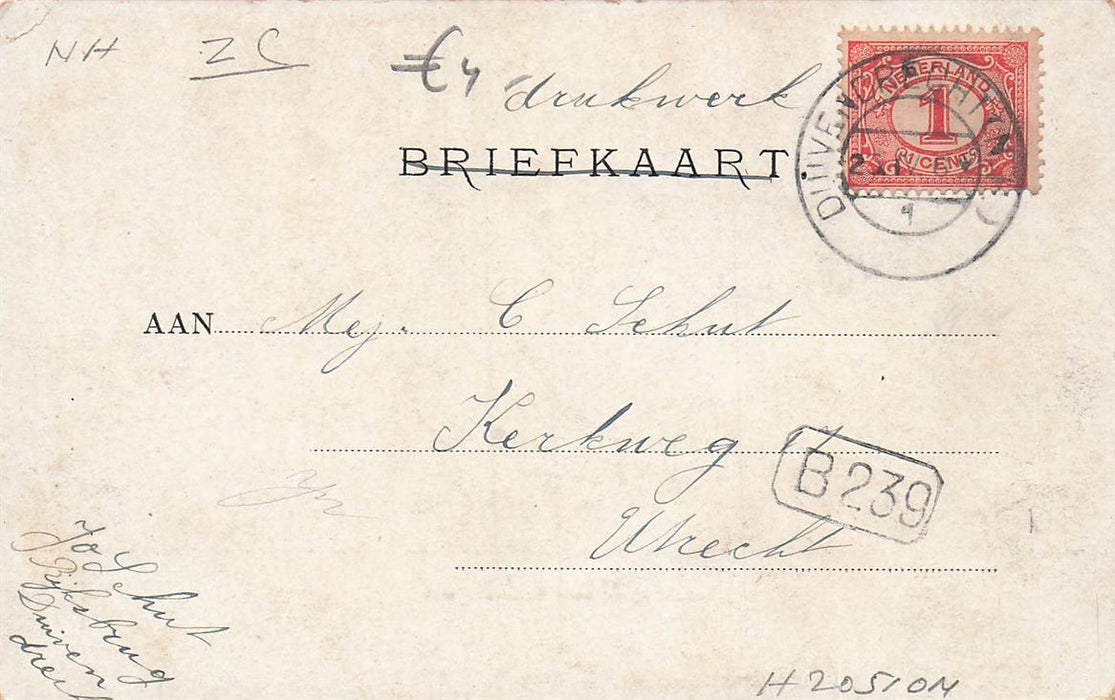 NH ZC €4 drukwerk
BRIEFKAART
NEDERLAND
1
CENT
DUIVENDRECHT
AAN Mej. C Schut
Kerkweg 17
B239
Utrecht
Jo Schut
Rijksbrug
Duiven
drecht
H20510M